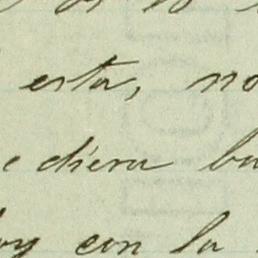 esta, no
e diera bu
hoy con la